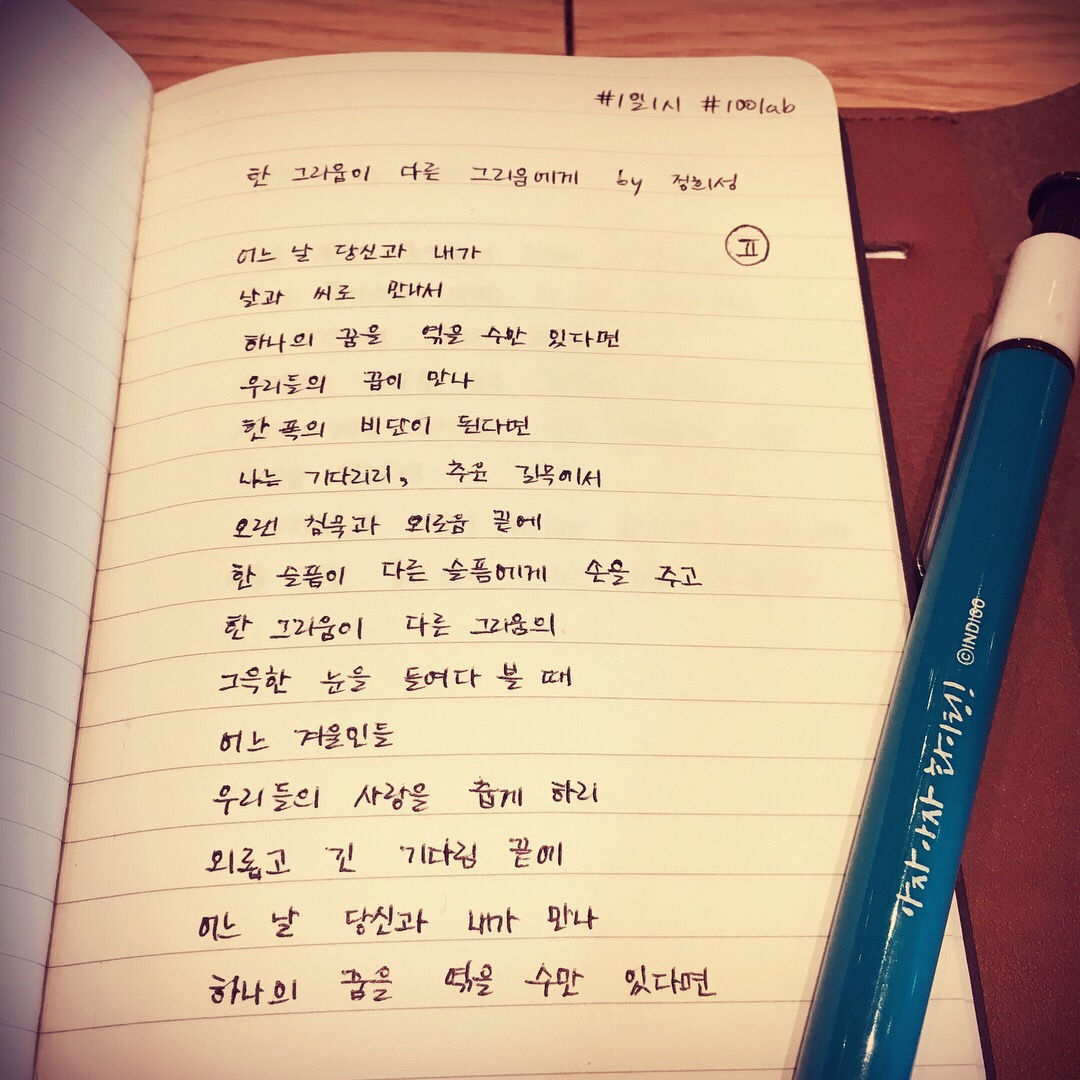 #1일1시 #100lab
한 그리움이 다른 그리움에게 by 정희성
II
어느 날 당신과 내가
날과 씨로 만나서
하나의 꿈을 엮을 수만 있다면
우리들의 꿈이 만나
한 폭의 비단이 된다면
나는 기다리리, 추운 길목에서
오랜 침묵과 외로움 끝에
한 슬픔이 다른 슬픔에게 손을 주고
한 그리움이 다른 그리움의
그윽한 눈을 들여다 볼 때
어느 겨울인들
우리들의 사랑을 춥게 하리
외롭고 긴 기다림 끝에
어느 날 당신과 내가 만나
하나의 꿈을 엮을 수만 있다면
아자 아자 화이팅! ©INDIGO